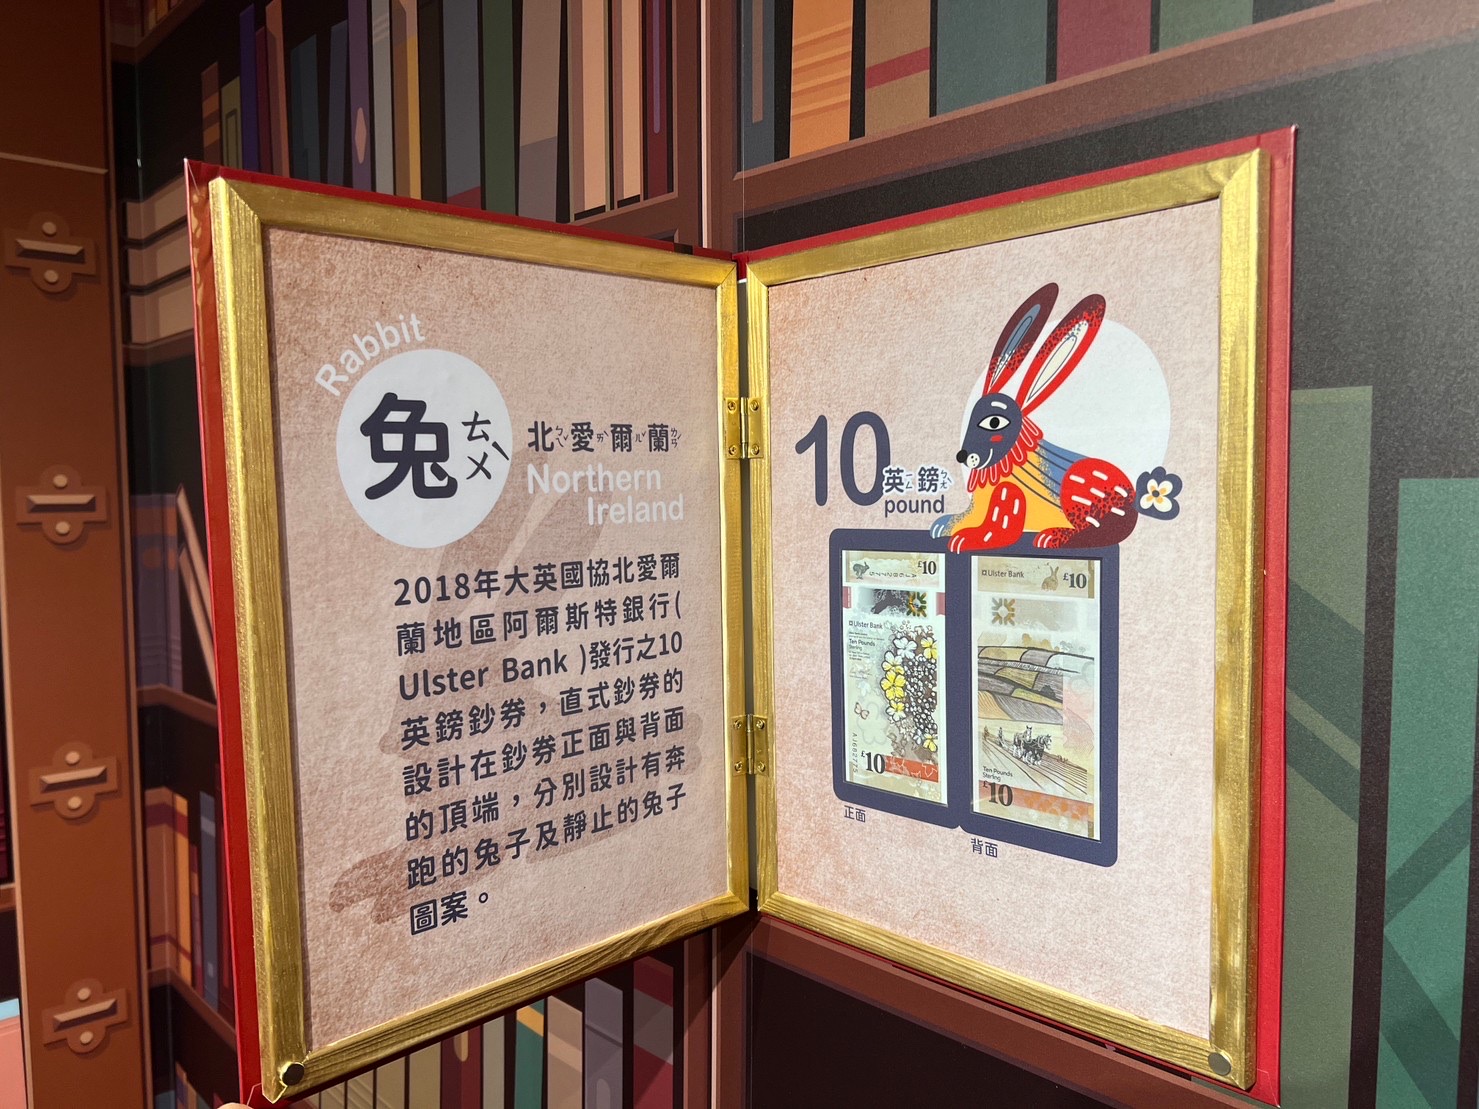 Rabbit
兔 ㄊㄨˋ
北ㄅㄟˇ愛ㄞˋ爾ㄦˇ蘭ㄌㄢˊ
Northern
Ireland
2018年大英國協北愛爾
蘭地區阿爾斯特銀行(
Ulster Bank )發行之10
英鎊鈔券，直式鈔券的
設計在鈔券正面與背面
的頂端，分別設計有奔
跑的兔子及靜止的兔子
圖案。
10英ㄧㄥ鎊ㄅㄤˋ
pound
£10
Ulster Bank
Ten Pounds
Sterling
£10
正面
Ulster Bank
£10
Ten Pounds
Sterling
£10
背面